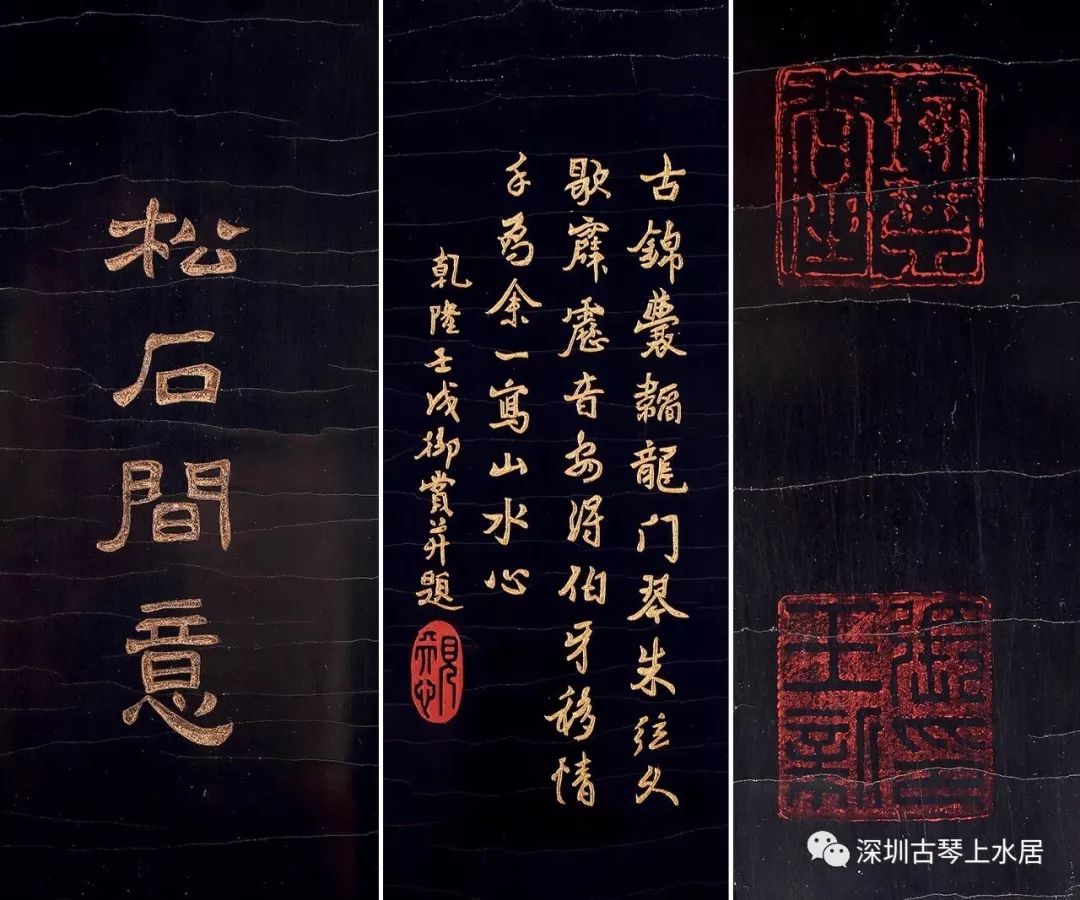 松石間意
古錦囊韜龍门琴朱弦久
歇霹靂音安得伯牙移情
手为余一寫山水心
乾隆壬戌御賞并題
見天心
深圳古琴上水居